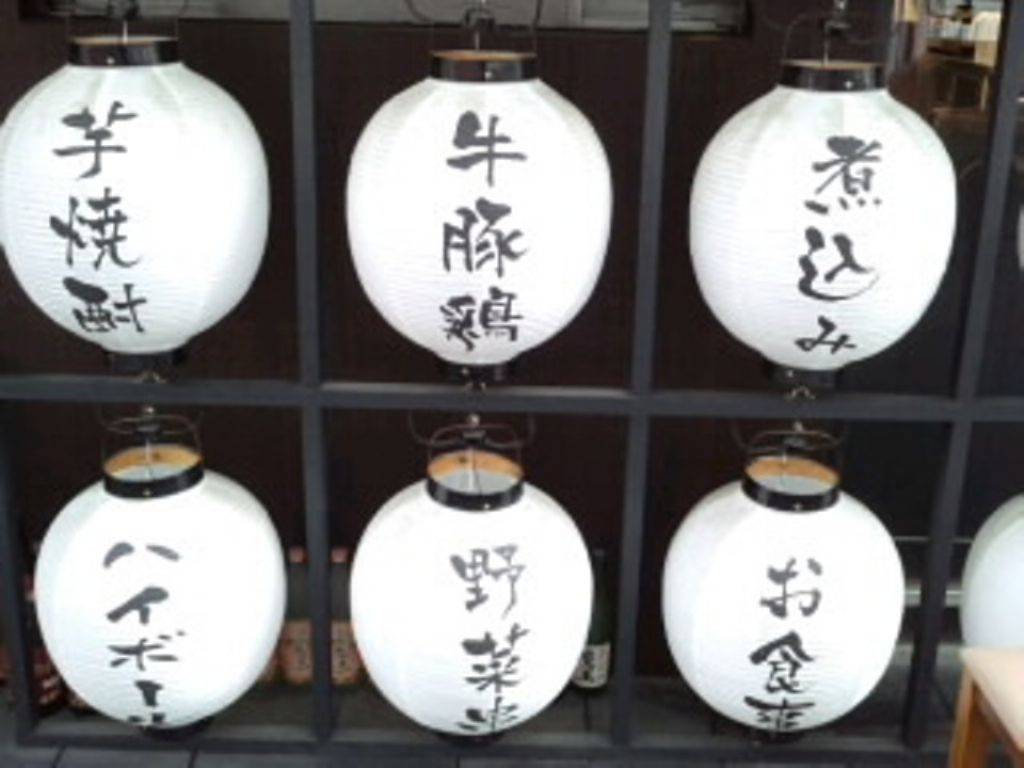 芋焼酎
牛豚鶏
煮込み
ハイボール
野菜串
お食事